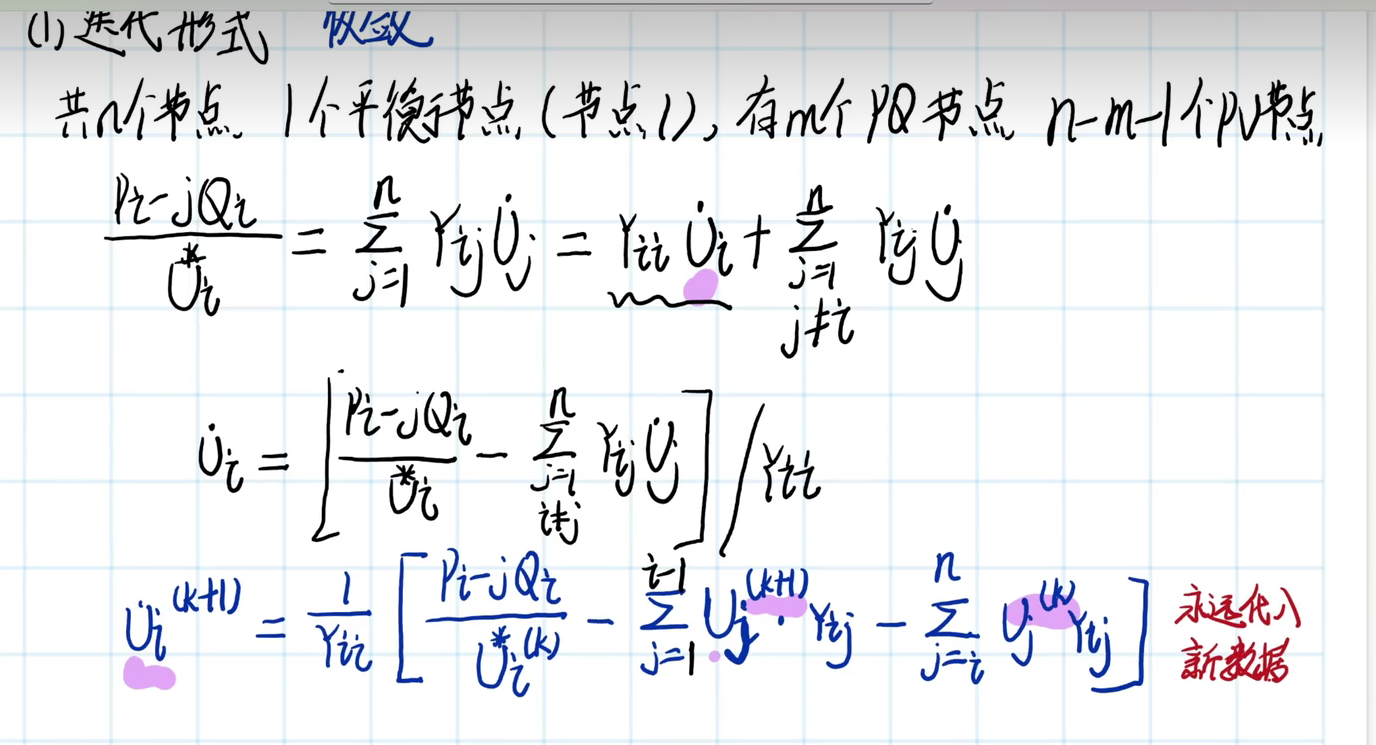 (1) 迭代形式 收敛
共n个节点 1个平衡节点(节点1), 有m个PQ节点 n-m-1个PV节点
(Pi-jQi)/U̇*i = Σ_{j=1}^{n} Yij U̇j = Yii U̇i + Σ_{j=1, j≠i}^{n} Yij U̇j
U̇i = [ (Pi-jQi)/U*i - Σ_{j=1, i≠j}^{n} Yij U̇j ] / Yii
U̇i^(k+1) = 1/Yii [ (Pi-jQi)/U*i^(k) - Σ_{j=1}^{i-1} Uj^(k+1) · Yij - Σ_{j=i}^{n} Uj^(k) Yij ] 永远代入
新数据